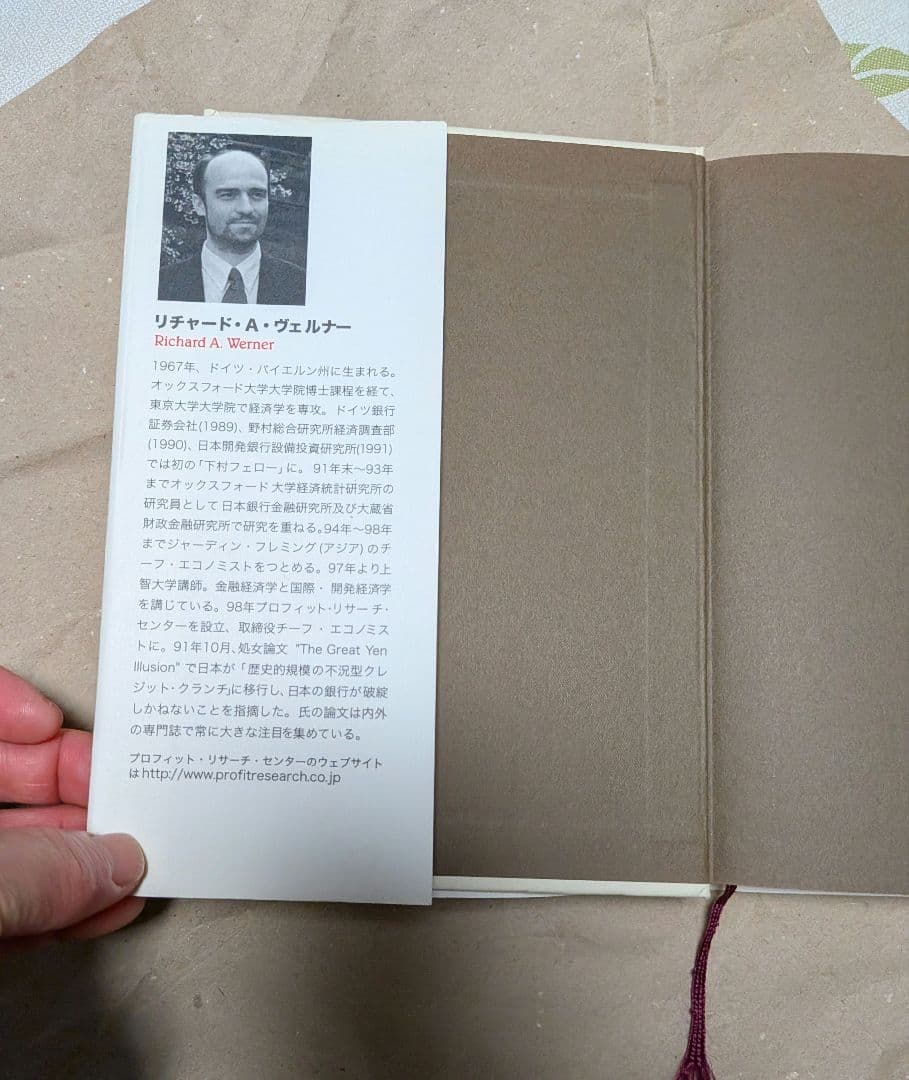 リチャード・A・ヴェルナー
Richard A. Werner
1967年、ドイツ・バイエルン州に生まれる。
オックスフォード大学大学院博士課程を経て、
東京大学大学院で経済学を専攻。ドイツ銀行
証券会社(1989)、野村総合研究所経済調査部
(1990)、日本開発銀行設備投資研究所(1991)
では初の「下村フェロー」に。91年末〜93年
までオックスフォード大学経済統計研究所の
研究員として日本銀行金融研究所及び大蔵省
財政金融研究所で研究を重ねる。94年〜98年
までジャーディン・フレミング(アジア)のチ
ーフ・エコノミストをつとめる。97年より上
智大学講師。金融経済学と国際・開発経済学
を講じている。98年プロフィット・リサーチ・
センターを設立、取締役チーフ・エコノミス
トに。91年10月、処女論文 "The Great Yen
Illusion" で日本が「歴史的規模の不況型クレ
ジット・クランチ」に移行し、日本の銀行が破綻
しかねないことを指摘した。氏の論文は内外
の専門誌で常に大きな注目を集めている。
プロフィット・リサーチ・センターのウェブサイト
はhttp://www.profitresearch.co.jp